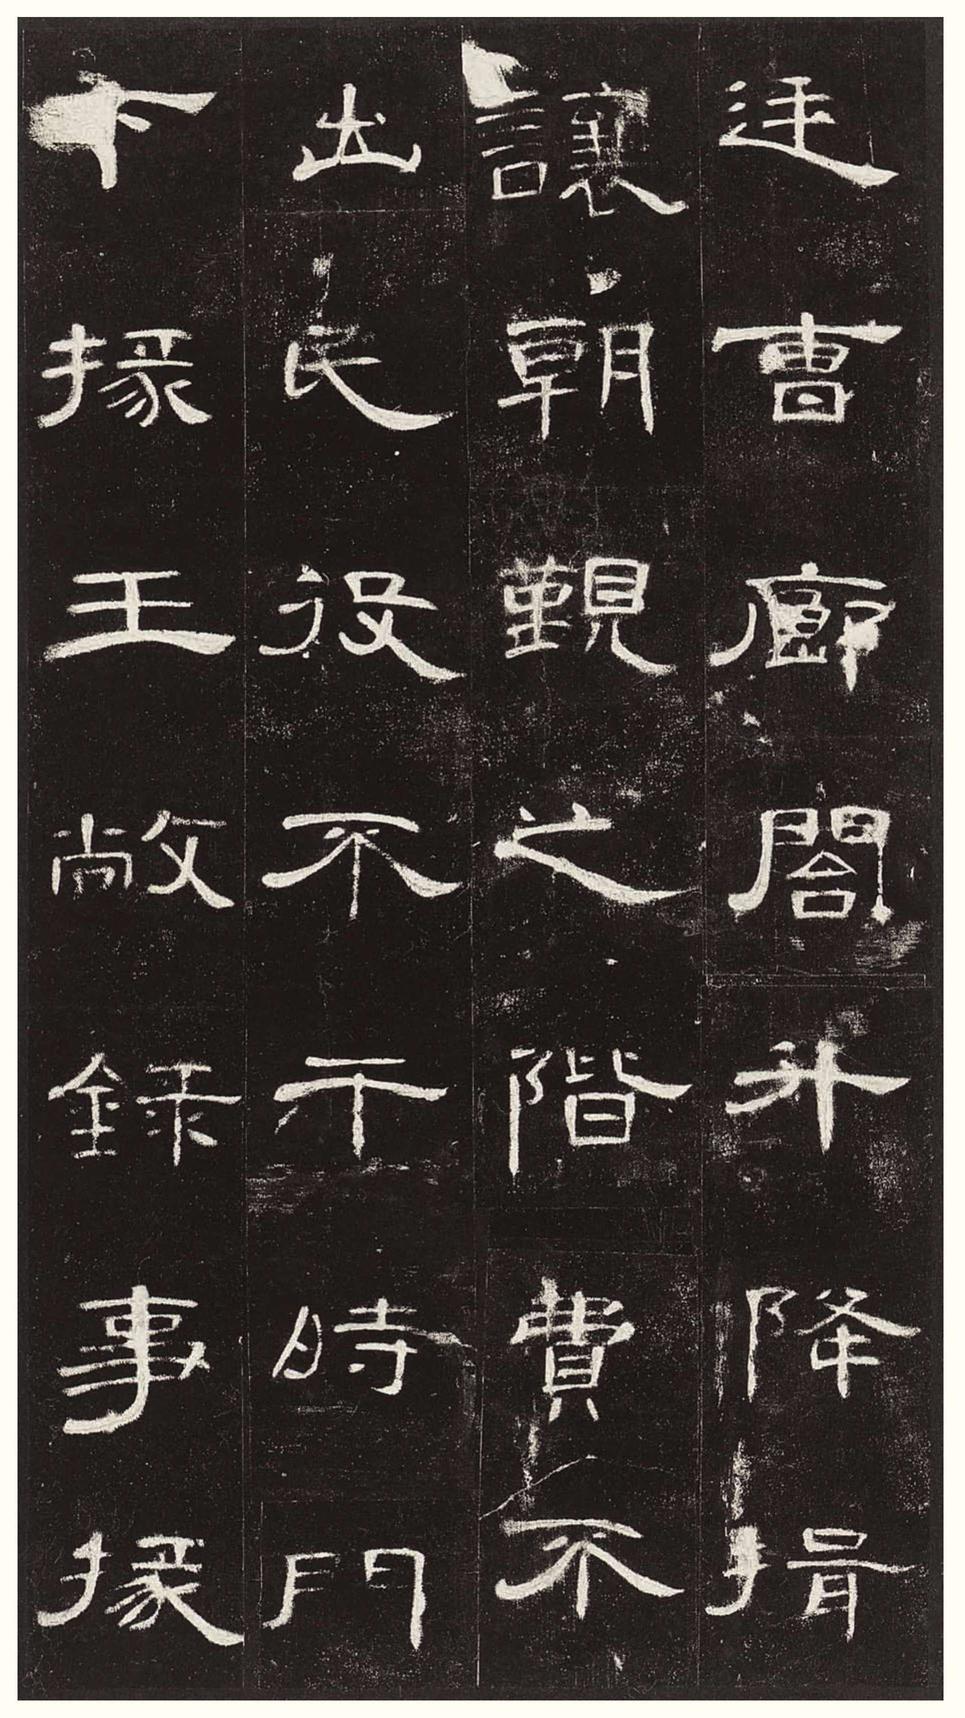 廷曹廊閤升降揖
讓朝覲之階費不
出民役不干時門
下掾王敞錄事掾